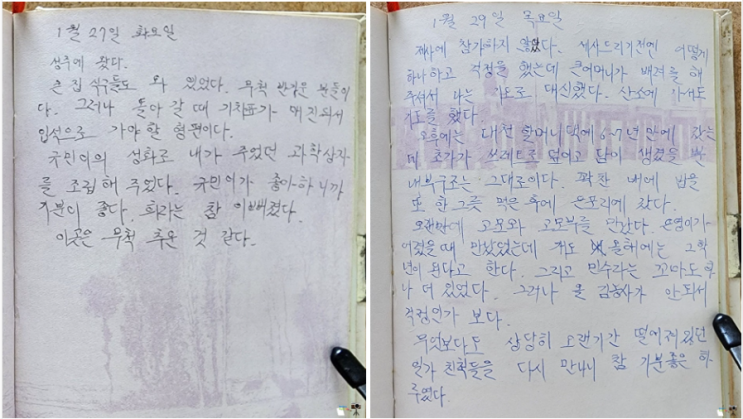 1월 27일 화요일
상주에 왔다.
큰 집 식구들도 와 있었다. 무척 반가운 분들이
다. 그러나 돌아 갈 때 기차표가 매진되서
입석으로 가야 할 형편이다.
규민이의 성화로 내가 주었던 과학상자
를 조립해 주었다. 규민이가 좋아하니까
기분이 좋다. 희라는 참 이뻐졌다.
이곳은 무척 추운 것 같다.
1월 29일 목요일
제사에 참가하지 않았다. 제사드리기전에 어떻게
하나하고 걱정을 했는데 큰어머니가 배려를 해
주셔서 나는 기도로 대신했다. 산소에 가서도
기도를 했다.
오후에는 대전 할머니댁에 6~7년 만에 갔는
데 초가가 쓰레트로 덮이고 담이 생겼을 뿐
내부구조는 그대로이다. 꽉 찬 배에 밥을
또 한 그릇 먹은 후에 은모리에 갔다.
오랜만에 고모와 고모부를 만났다. 은영이가
어렸을 때 만났었는데 걔도 올해에는 2학
년이 된다고 한다. 그리고 민수라는 꼬마도 하
나 더 있었다. 그러나 올 감농사가 안되서
걱정인가 보다.
무엇보다도 상당히 오랜기간 떨어져있던
일가 친척들을 다시 만나니 참 기분좋은 하
루였다.